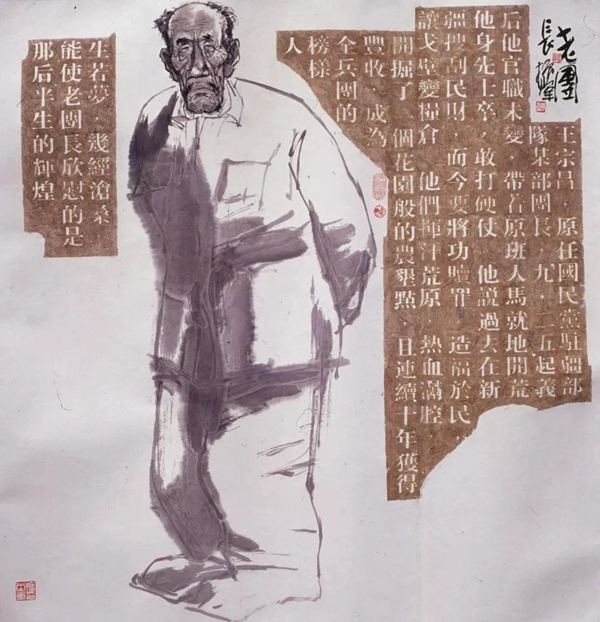 老團
長
王宗昌，原任國民黨駐疆部
隊某部團長，九·二五起義
后他官職未變，帶着原班人馬就地開荒
他身先士卒，敢打硬仗，他説過去在新
疆搜刮民財，而今要將功贖罪，造福於民
讓戈壁變糧倉，他們揮汗荒原，熱血滿腔
開掘了一個花園般的農墾點，且連續十年獲得
豐收，成為
全兵團的
榜樣
人
生若夢，幾經滄桑
能使老團長欣慰的是
那后半生的輝煌